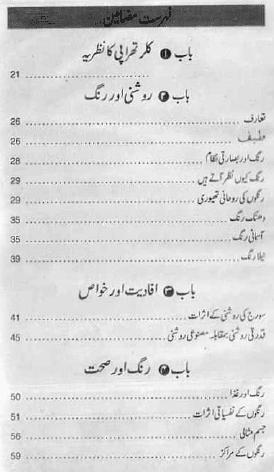 فہرست مضامین
باب ① کلر تھراپی کا نظریہ
21
باب ② روشنی اور رنگ
تعارف 26
طیف 26
رنگ اور بصارتی نظام 28
رنگ کیوں نظر آتے ہیں 29
رنگوں کی روحانی تھیوری 29
دھنک رنگ 35
آسمانی رنگ 35
نیلا رنگ 39
باب ③ افادیت اور خواص
سورج کی روشنی کے اثرات 41
قدرتی روشنی بمقابلہ مصنوعی روشنی 45
باب ④ رنگ اور صحت
رنگ اور غذا 50
رنگوں کے نفسیاتی اثرات 51
جسم مثالی 56
رنگوں کے مراکز 59